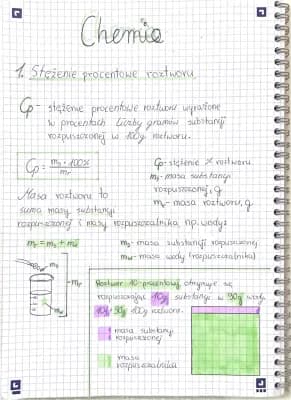 Chemia
1. Stężenie procentowe roztworu
Cp - stężenie procentowe roztworu wyrażone
w procentach liczby gramów substancji
rozpuszczonej w 100g roztworu.
Cp = ms · 100% / mr
Cp - stężenie % roztworu
ms - masa substancji
rozpuszczonej, g
mr - masa roztworu, g
Masa roztworu to
suma masy substancji
rozpuszczonej i masy rozpuszczalnika, np. wody
mr = ms + mw
ms - masa substancji rozpuszczonej
mw - masa wody (rozpuszczalnika)
ms
mr
Roztwór 10-procentowy otrzymuje się
rozpuszczając 10g substancji w 90g wody
10g + 90g = 100g roztworu.
masa substancji
rozpuszczonej
masa
rozpuszczalnika